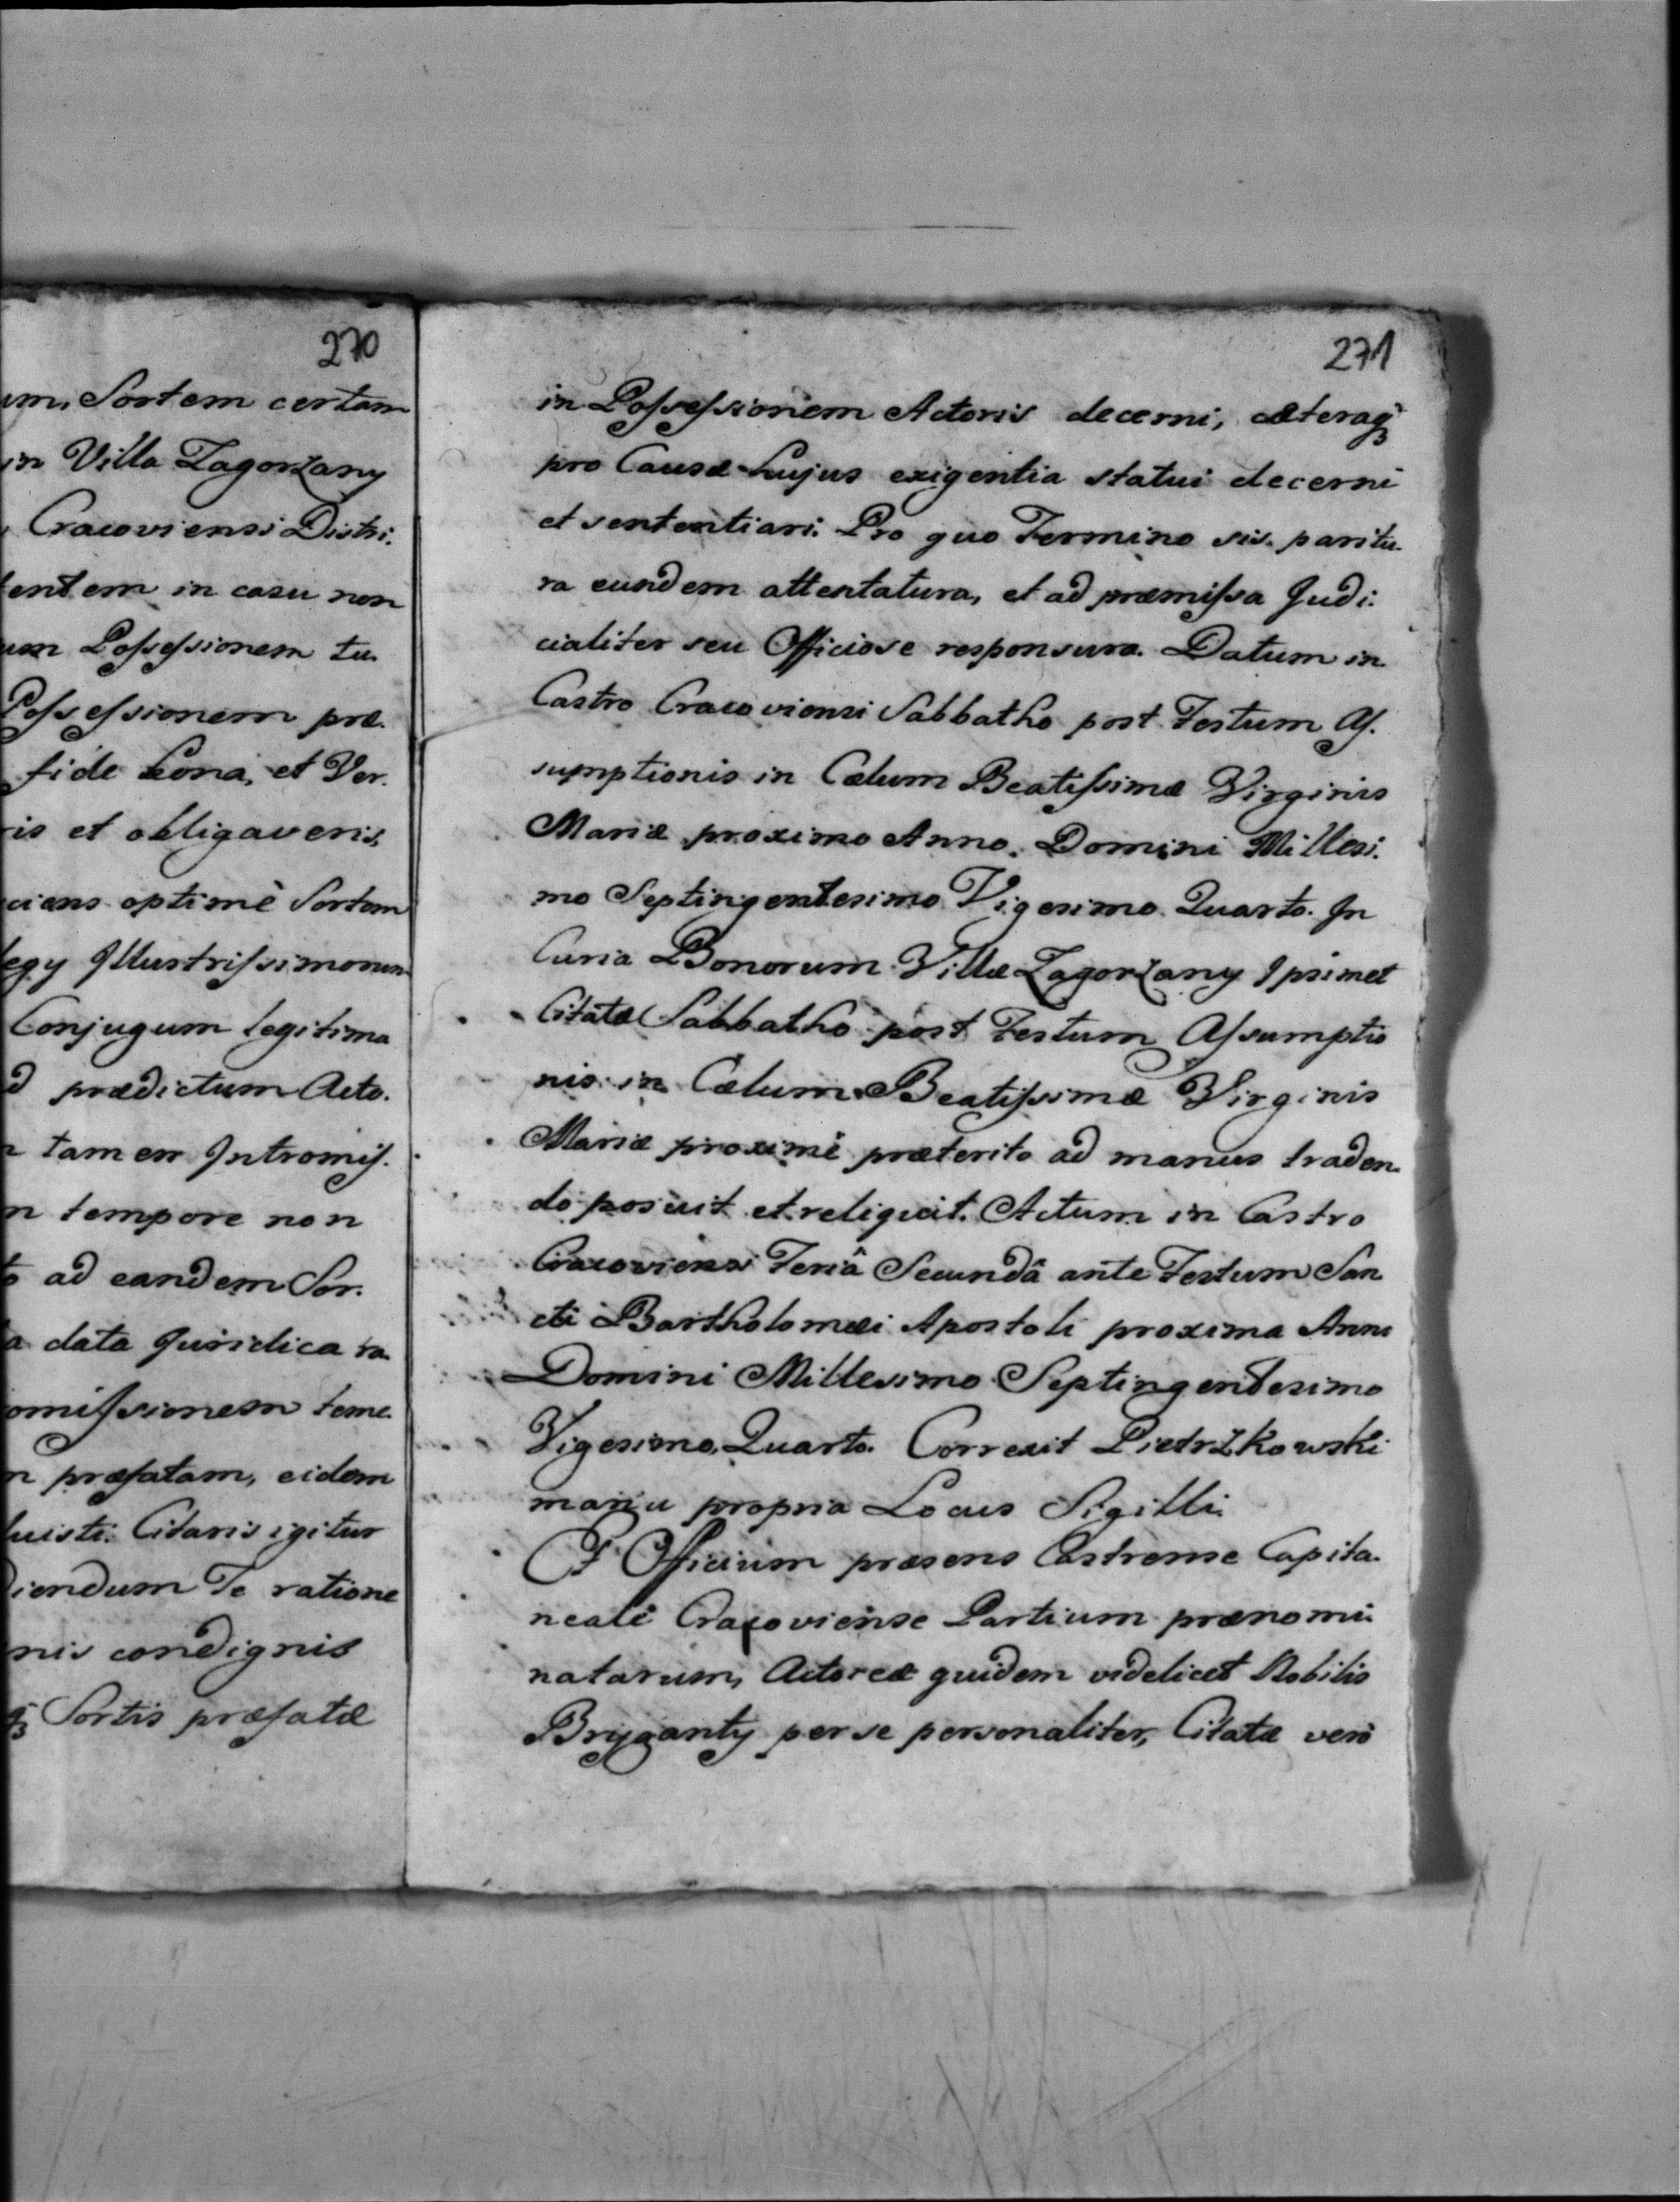 270
um, Sortem certam
in Villa Zagorzany
Cracoviensi Distri.
tentem in casu non
um Possessionem tu.
Possessionem præ.
fide bona, et Ver.
ris et obligaveris,
ciens optimè Sortem
Illustrissimorum
Conjugum legitima
d prædictum Acto.
tamen Intromis.
n tempore non
to ad eandem Sor.
a data Juridica ra.
omissionem teme.
n præfatam, eidem
luisti. Citaris igitur
diendum Te ratione
nis condignis
Sortis præfatæ
271
in Possessionem Actoris decerni, cæteraq3
pro Causæ hujus exigentia statui decerni
et sententiari. Pro quo Termino sis paritu.
ra eundem attentatura, et ad præmissa Judi.
cialiter seu Officiose responsura. Datum in
Castro Cracoviensi Sabbatho post Festum As.
sumptionis in Cælum Beatissimæ Virginis
Mariæ proximo Anno Domini Millesi.
mo Septingentesimo Vigesimo Quarto. In
Curia Bonorum Villæ Zagorzany Ipsimet
Citatæ Sabbatho post Festum Assumptio
nis in Cælum Beatissimæ Virginis
Mariæ proximè præterito ad manus traden.
do posuit et reliquit. Actum in Castro
Cracoviensi Feriâ Secundâ ante Festum San
cti Bartholomæi Apostoli proxima Anno
Domini Millesimo Septingentesimo
Vigesimo Quarto. Correxit Pietrzkowski
manu propria Locus Sigilli.
Et Officium præsens Castrense Capita.
neale Cracoviense Partium prænomi.
natarum, Actoreæ quidem videlicet Nobilis
Bryganty per se personaliter, Citatæ verò